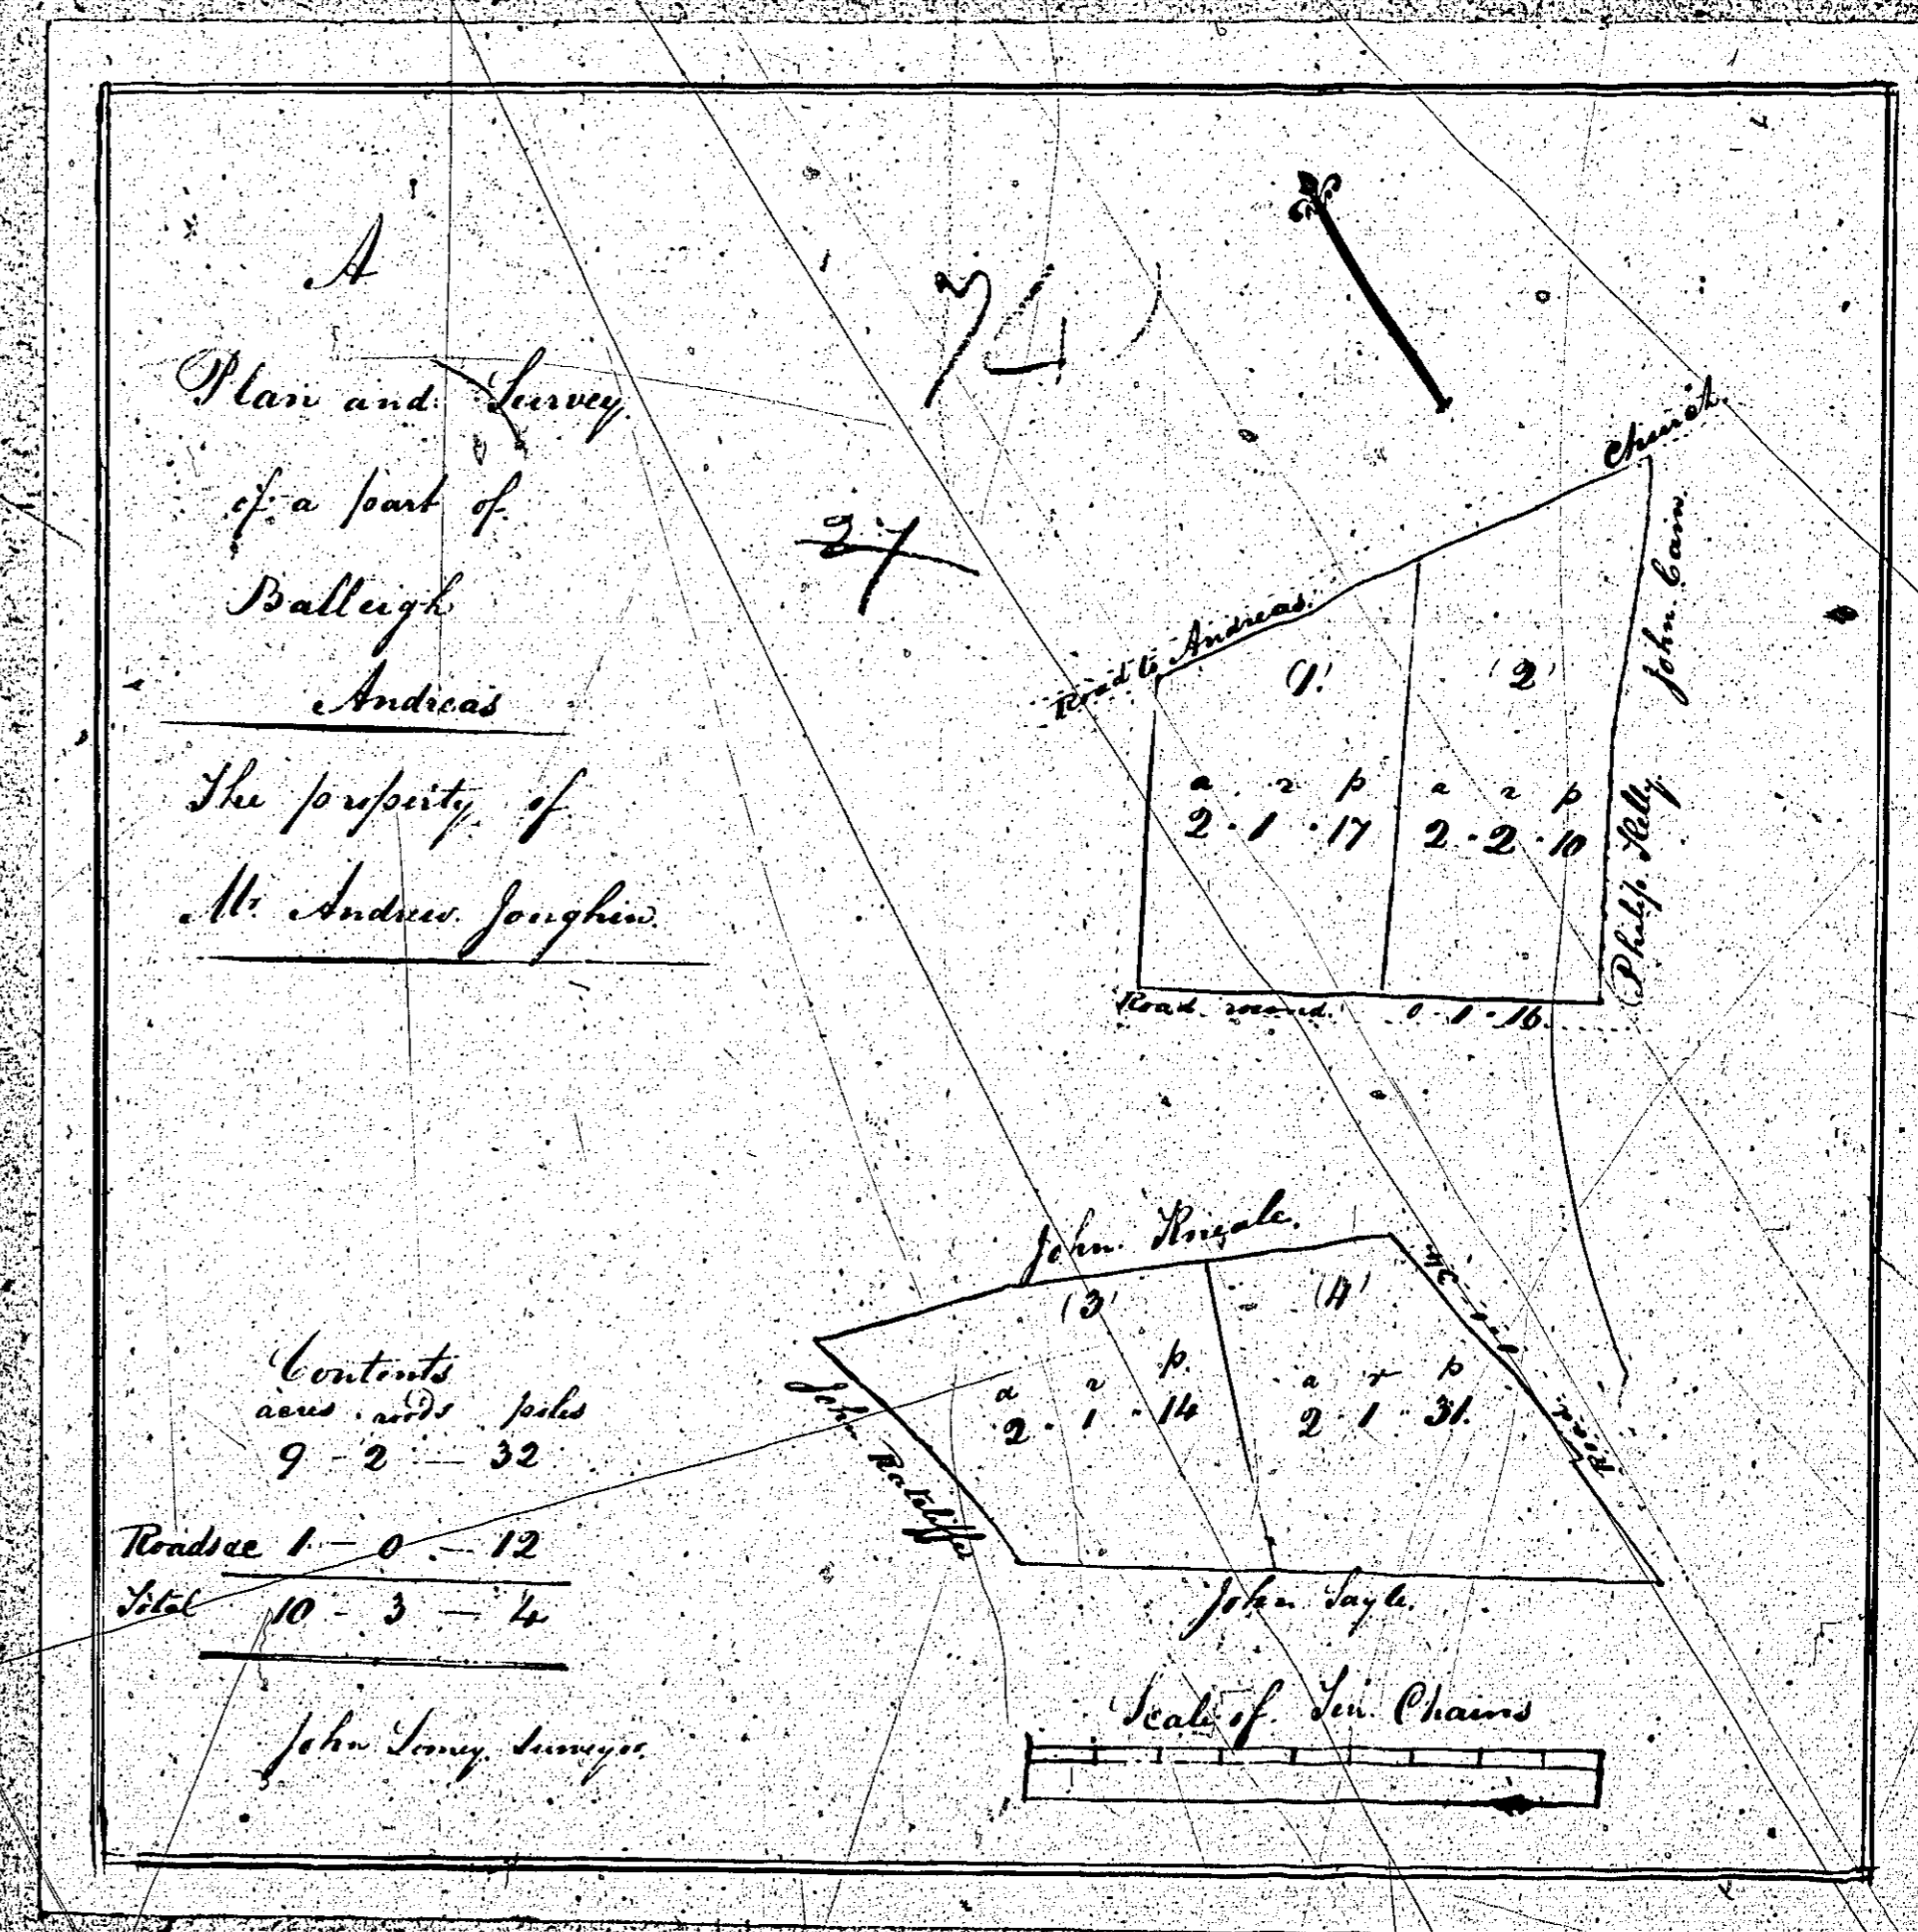 A
Plan and Survey
of a part of
Balleigh
Andreas
The property of
Mr. Andrew Joughin.
34
27
Road to Andreas Church.
John Cain.
Philip Kelly
(1)
a r p
2 . 1 . 17
(2)
a r p
2 . 2 . 10
Road round. 0 . 1 . 16.
John Kneale.
(3)
a r p.
2 . 1 . 14
(4)
a r p
2 . 1 . 31.
John Ratcliffe
road
John Sayle.
Contents
acres roods poles
9 - 2 - 32
Roads &c 1 - 0 - 12
Total 10 - 3 - 4
John Lomey Surveyor.
Scale of Ten Chains